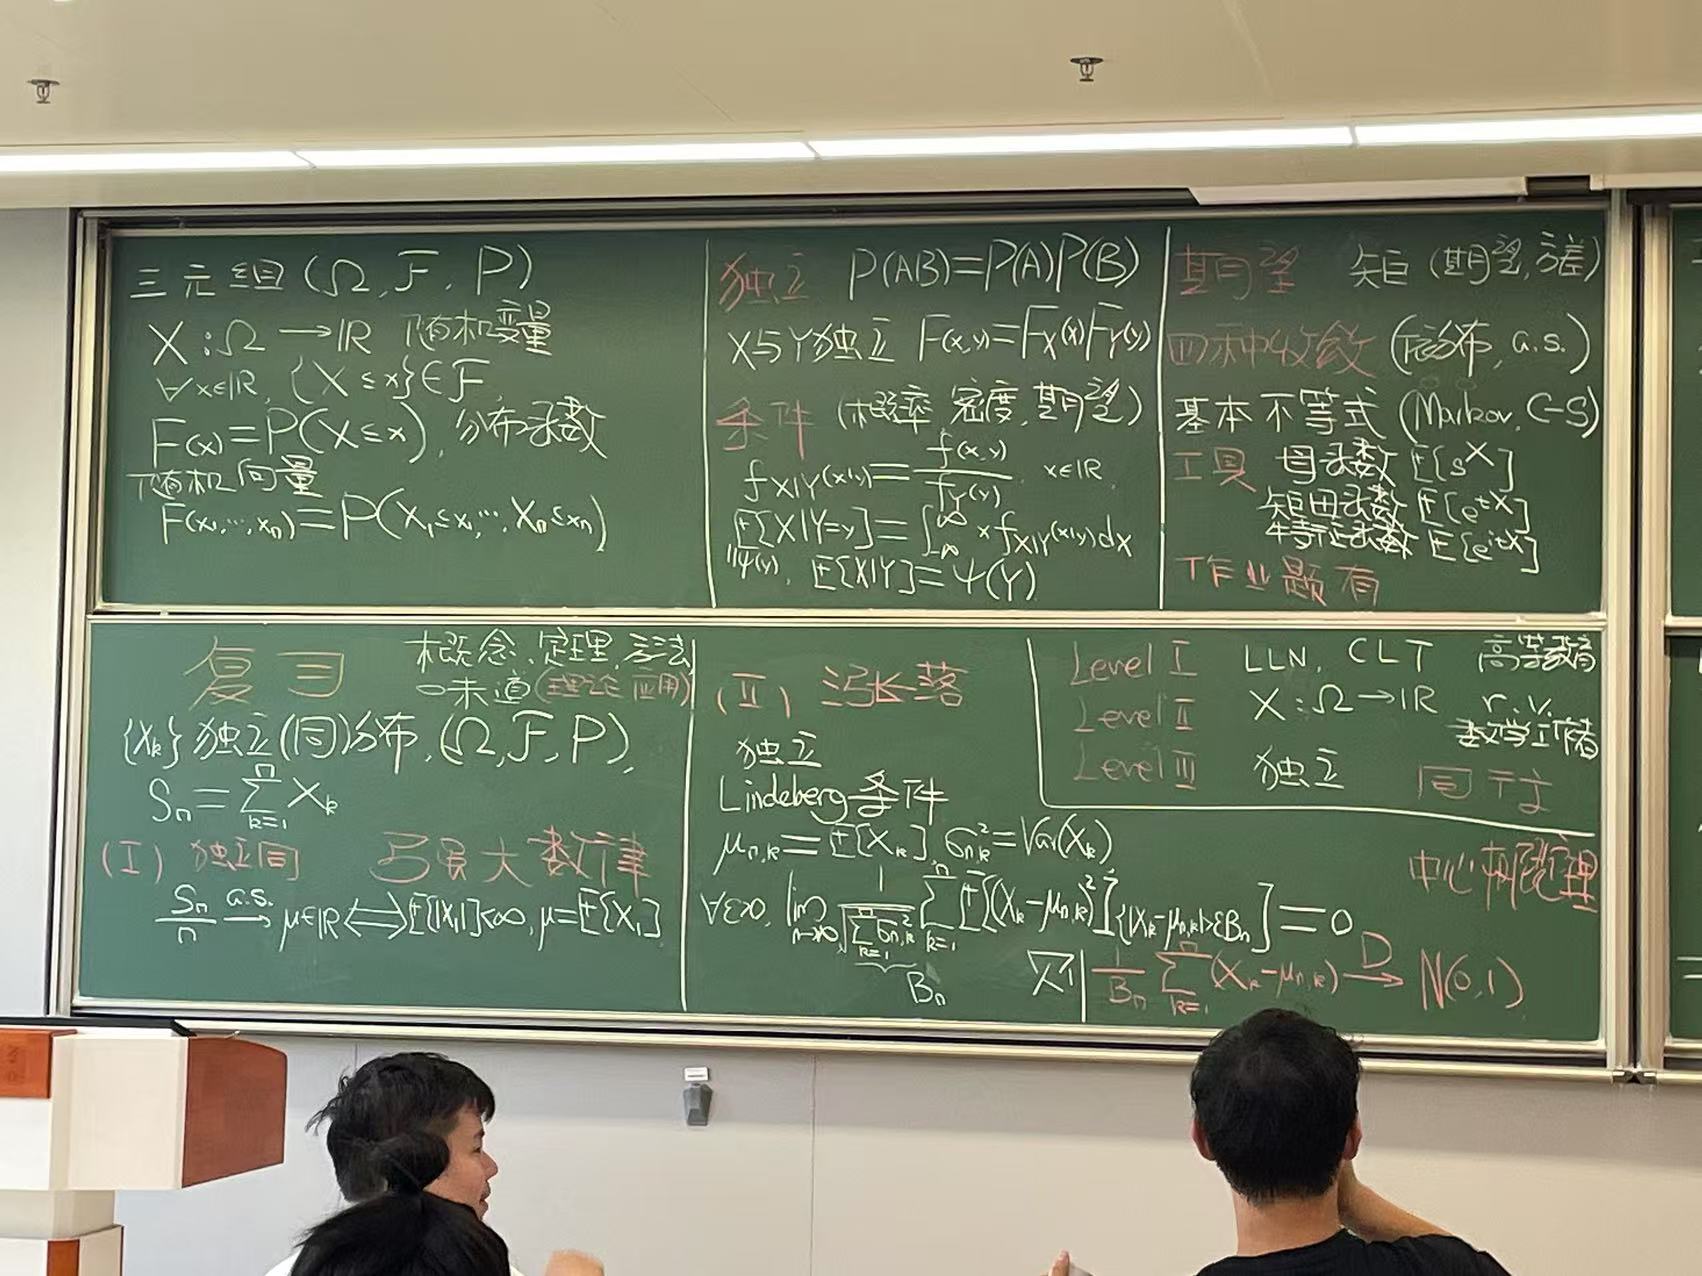 三元组 (Ω, F, P)
X : Ω → ℝ 随机变量
∀x∈ℝ, {X ≤ x} ∈ F,
F(x) = P(X ≤ x), 分布函数
随机向量
F(x₁,…,xₙ) = P(X₁≤x₁,…, Xₙ≤xₙ)
独立 P(AB)=P(A)P(B)
X与Y独立 F(x,y)=F_X(x)F_Y(y)
条件 (概率, 密度, 期望)
f_{X|Y}(x|y) = f(x,y)/f_Y(y), x∈ℝ,
E[X|Y=y] = ∫_{-∞}^{∞} x f_{X|Y}(x|y)dx
"ψ(y), E[X|Y] = ψ(Y)
期望 矩 (期望, 方差)
四种收敛 (依分布, a.s.)
基本不等式 (Markov, C-S)
工具 母函数 E[s^X]
矩母函数 E[e^{tX}]
特征函数 E[e^{itX}]
作业题有
复习 概念、定理、方法
一味道 (理论 应用)
{X_k} 独立(同)分布, (Ω, F, P),
Sₙ = Σ_{k=1}^{n} X_k
(Ⅰ) 独立同 强大数律
Sₙ/n →^{a.s.} μ∈ℝ ⟺ E[|X₁|]<∞, μ=E[X₁]
(Ⅱ) 涨落
独立
Lindeberg条件
μ_{n,k} = E[X_k], σ²_{n,k} = Var(X_k)
∀ε>0, lim_{n→∞} 1/√(Σ_{k=1}^{n} σ²_{n,k}) Σ_{k=1}^{n} E[(X_k−μ_{n,k})² I_{{|X_k−μ_{n,k}|>εBₙ}}] = 0
Bₙ
则 1/Bₙ Σ_{k=1}^{n} (X_k−μ_{n,k}) →^{D} N(0,1)
Level Ⅰ LLN, CLT 高等教育
Level Ⅱ X : Ω → ℝ r.v.
数学工作者
Level Ⅲ 独立
中心极限定理